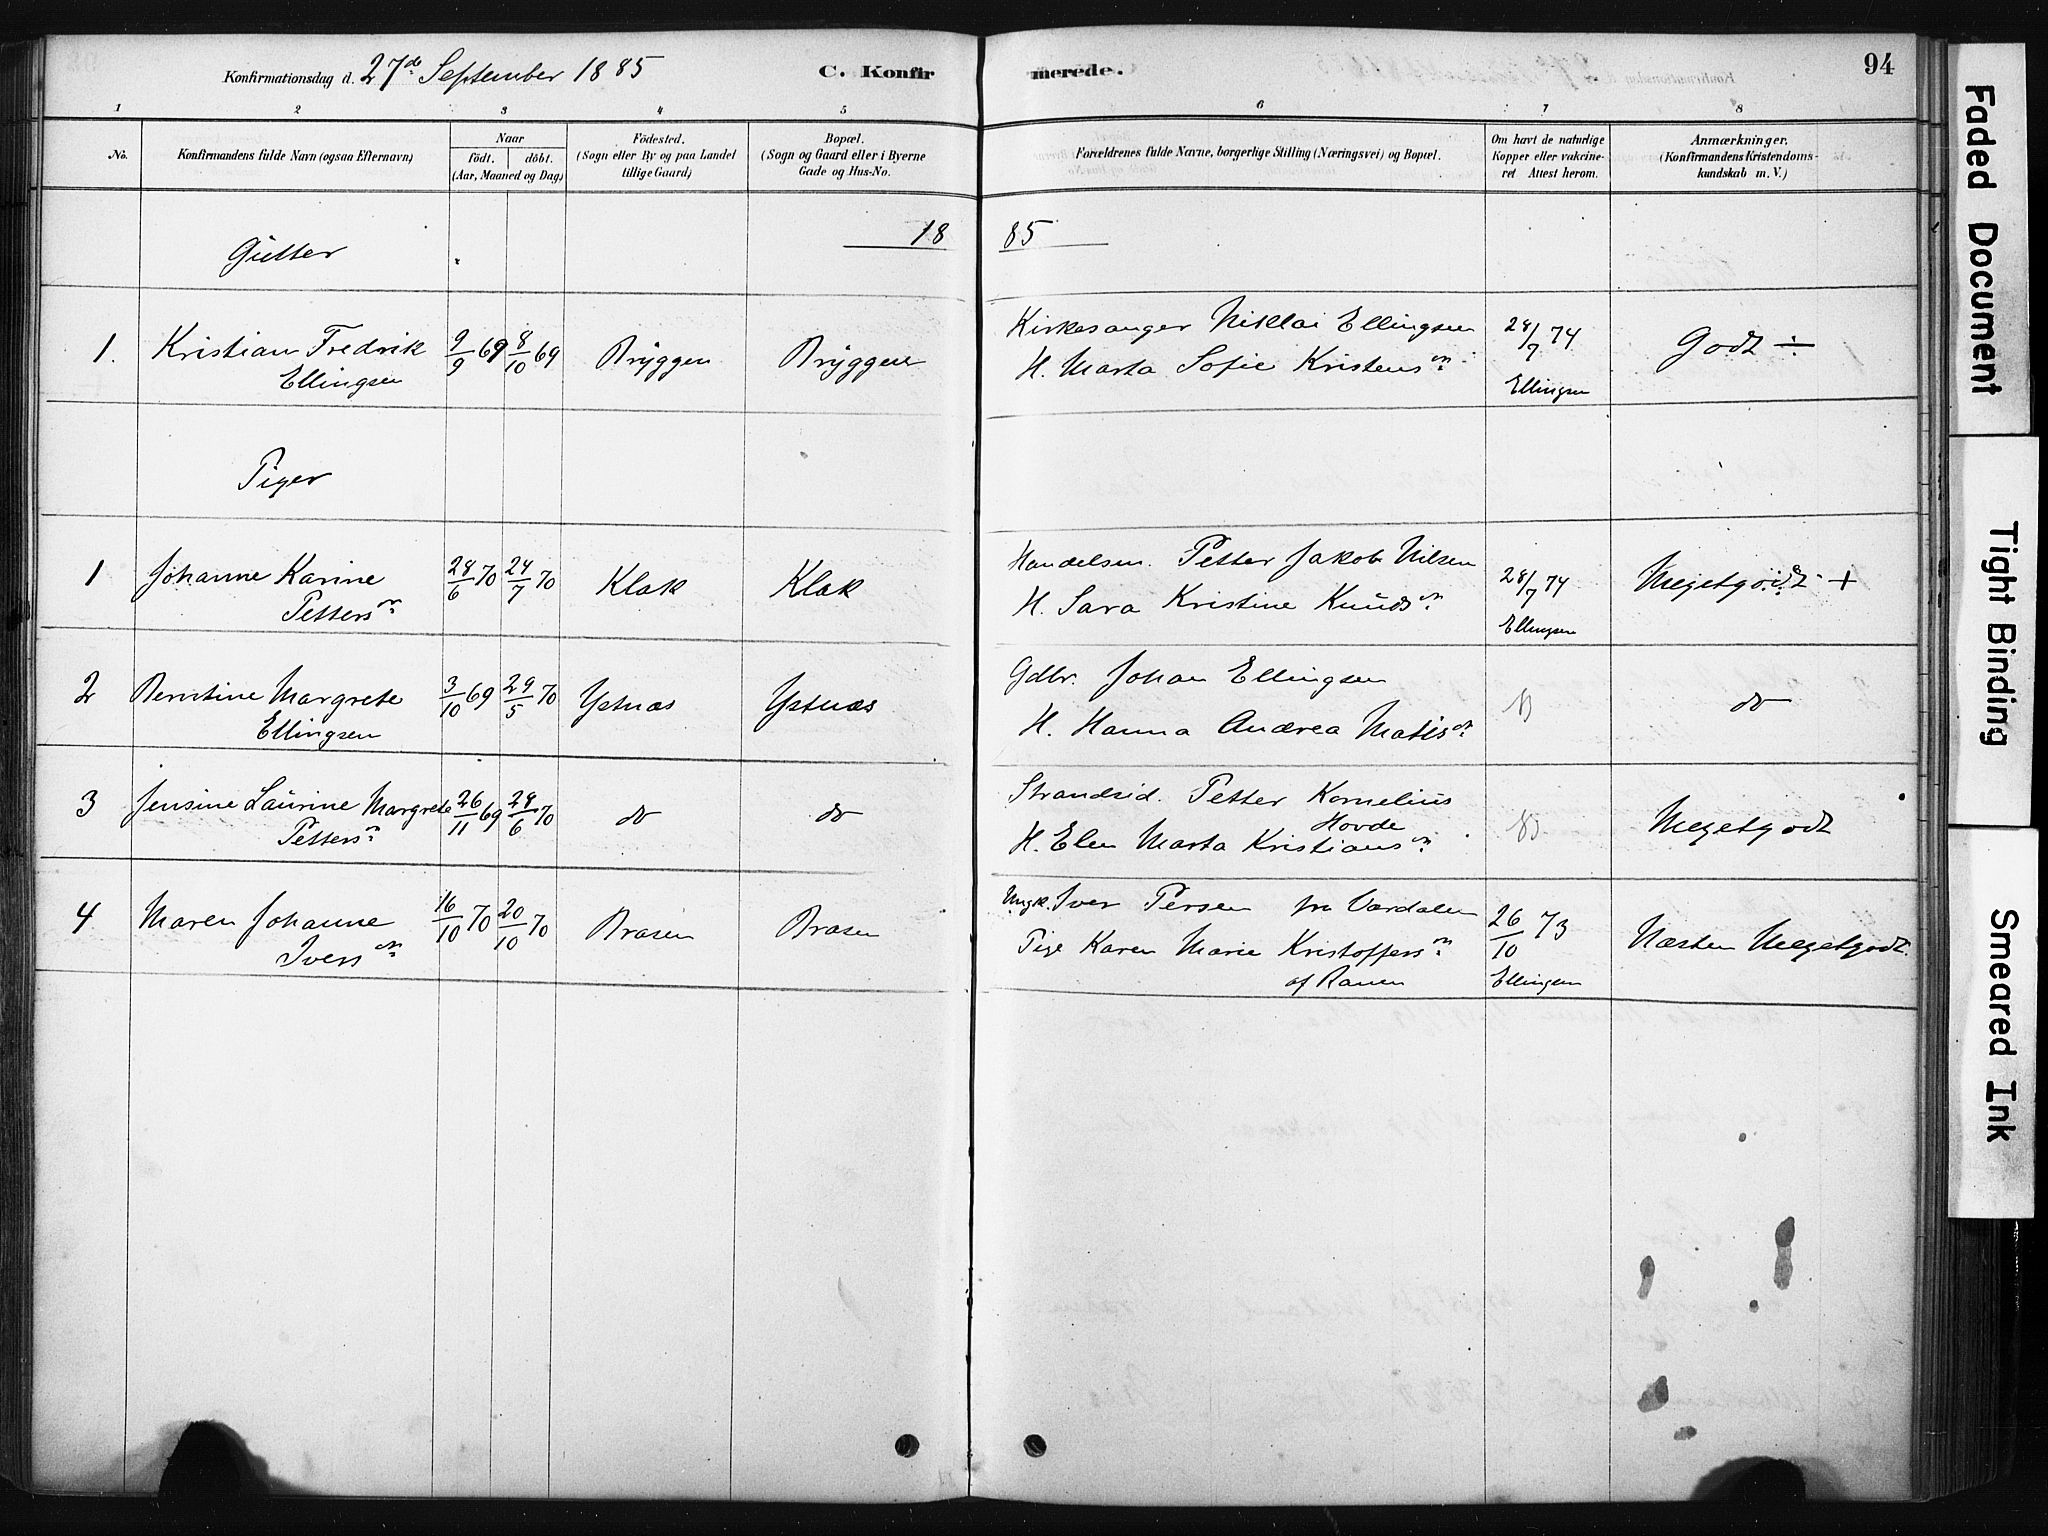 Konfirmationsdag d. 27de September 1885
C. Konfirmerede.
94
1 2 3 4 5 6 7 8
No.
Konfirmandens fulde Navn (ogsaa Efternavn)
Naar
födt. döbt.
(Aar, Maaned og Dag)
Födested.
(Sogn eller By og paa Landet
tillige Gaard)
Bopæl.
(Sogn og Gaard eller i Byerne
Gade og Hus-No.
Forældrenes fulde Navne, borgerlige Stilling (Næringsvei) og Bopæl.
Om havt de naturlige
Kopper eller vakcine-
ret Attest herom.
Anmærkninger.
(Konfirmandens Kristendoms-
kundskab m. V.)
Gutter
1885
1. Kristian Fredrik 9/9 69 8/10 69 Bryggen Bryggen
Ellingsen
Kirkesanger Niklai Ellingsen 28/7 74 Godt ÷
H. Marta Sofie Kristensen
Ellingsen
Piger
1 Johanne Karine 28/6 70 24/7 70 Klak Klak
Pettersn
Handelsm. Petter Jakob Nilsen 28/7 74 Megetgodt +
H. Sara Kristine Knudsn
Ellingsen
2 Berntine Margrete 3/10 69 29/5 70 Ystnæs Ystnæs
Ellingsen
Gdbr. Johan Ellingsen do
H. Hanna Andrea Matisn
3 Jensine Laurine Margrete 26/11 69 28/6 70 do do
Pettersn
Strandsid. Petter Kornelius
Hovde Megetgodt
H. Elen Marta Kristiansn
4 Maren Johanne 16/10 70 20/10 70 Brasen Brasen
Iversn
Ungk. Iver Persen fra Værdalen 26/10 73 Næsten Megetgodt.
Pige Karen Marie Kristoffersn
af Ranen Ellingsen
Faded Document
Tight Binding
Smeared Ink